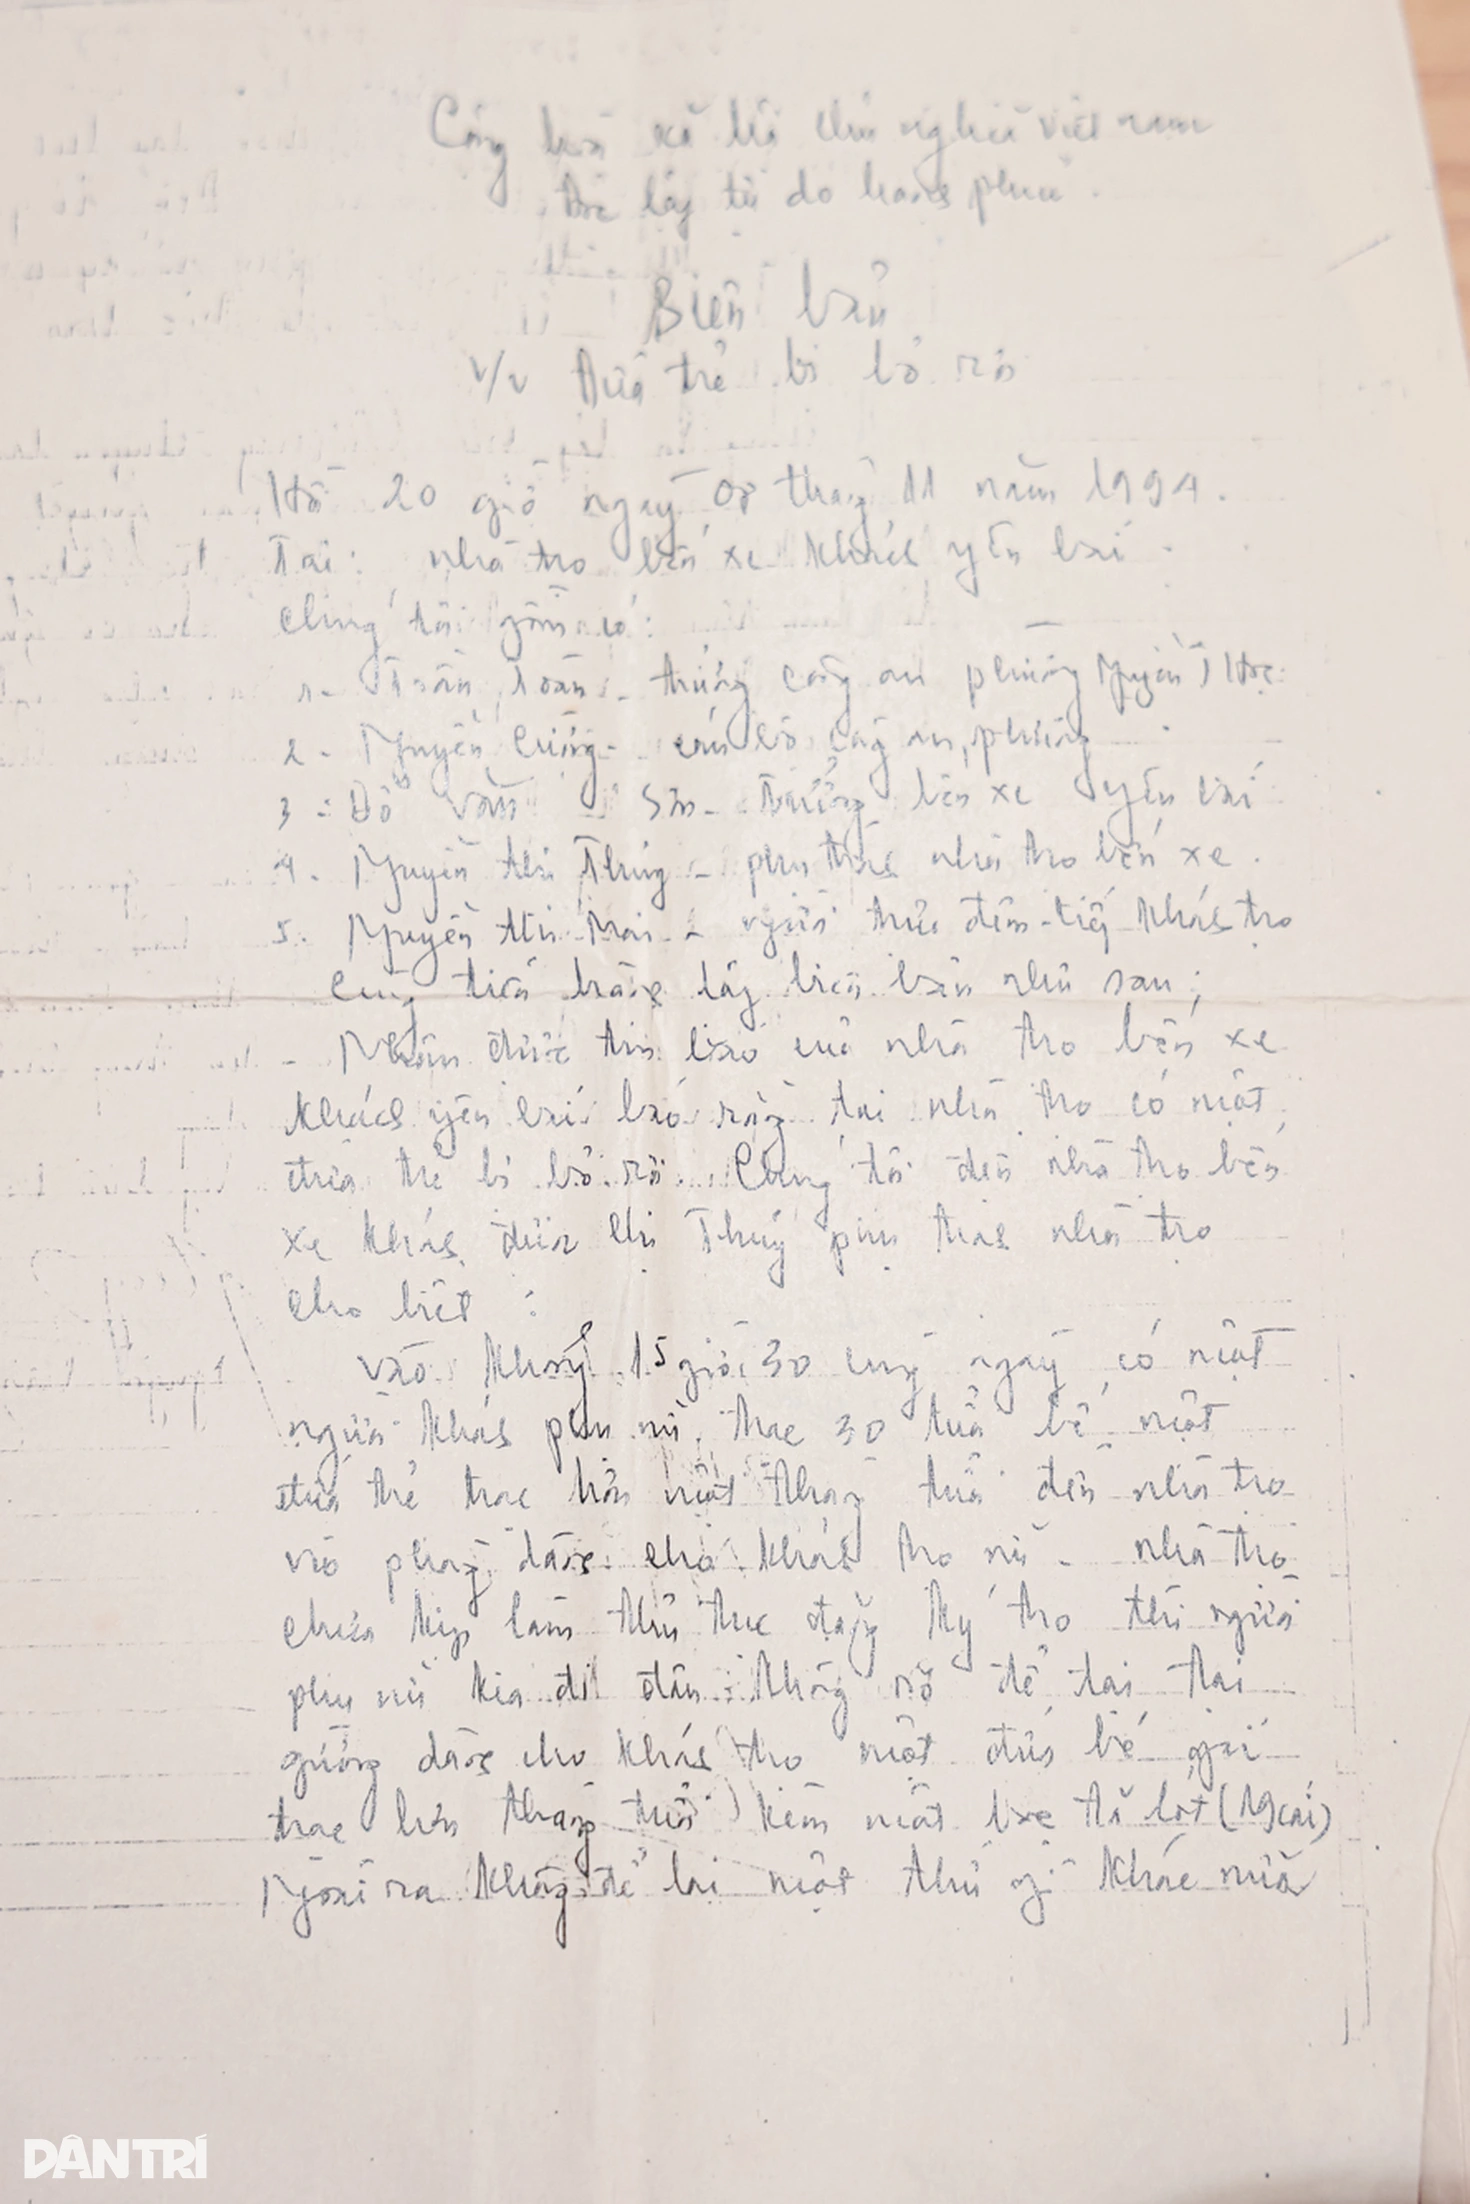 Cộng hòa xã hội chủ nghĩa việt nam
độc lập tự do hạnh phúc.
Biên bản
v/v đứa trẻ bị bỏ rơi
Hồi 20 giờ ngày 08 tháng 11 năm 1994.
Tại: nhà trọ bến xe khách yên bái.
chúng tôi gồm có:
1- Trần - trưởng công an phường Nguyễn T Học.
2 - Nguyễn Cường - cán bộ công an phường
3 - Đỗ Văn Sơn - Trưởng bến xe yên bái
4. Nguyễn thị Thúy - phụ trách nhà trọ bến xe.
5. Nguyễn thị Mai - người trực đêm tiếp khách trọ
Cùng tiến hành lập biên bản như sau;
- Nhận được tin báo của nhà trọ bến xe
khách yên bái báo rằng tại nhà trọ có một
đứa trẻ bị bỏ rơi. Chúng tôi đến nhà trọ bến
xe khách được chị Thúy phụ trách nhà trọ
cho biết :
vào khoảng 15 giờ 30 cùng ngày có một
người khách phụ nữ trạc 30 tuổi bế một
đứa trẻ trạc hơn một tháng tuổi đến nhà trọ
vào phòng dành cho khách trọ nữ - nhà trọ
chưa kịp làm thủ tục đăng ký trọ thì người
phụ nữ kia đi đâu không rõ để lại tại
giường dành cho khách trọ một đứa bé gái
trạc hơn tháng tuổi) kèm một bọc tã lót (19 cái)
Ngoài ra không để lại một thứ gì khác nữa
DÂN TRÍ